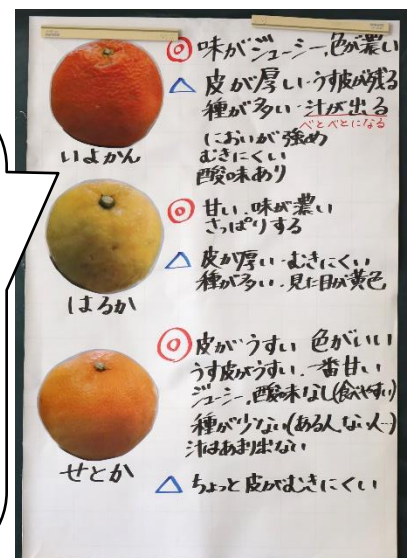 ◎ 味がジューシー、色が濃い
△ 皮が厚い・うす皮が残る
種が多い・汁が出る
べとべとになる
においが強め
むきにくい
酸味あり
いよかん
◎ 甘い、味が濃い
さっぱりする
△ 皮が厚い・むきにくい
種が多い・見た目が黄色
はるか
◎ 皮がうすい 色がいい
うす皮がうすい、一番甘い
ジューシー、酸味なし(食べやすい)
種が少ない(ある人ない人…)
汁はあまり出ない
せとか
△ ちょっと皮がむきにくい